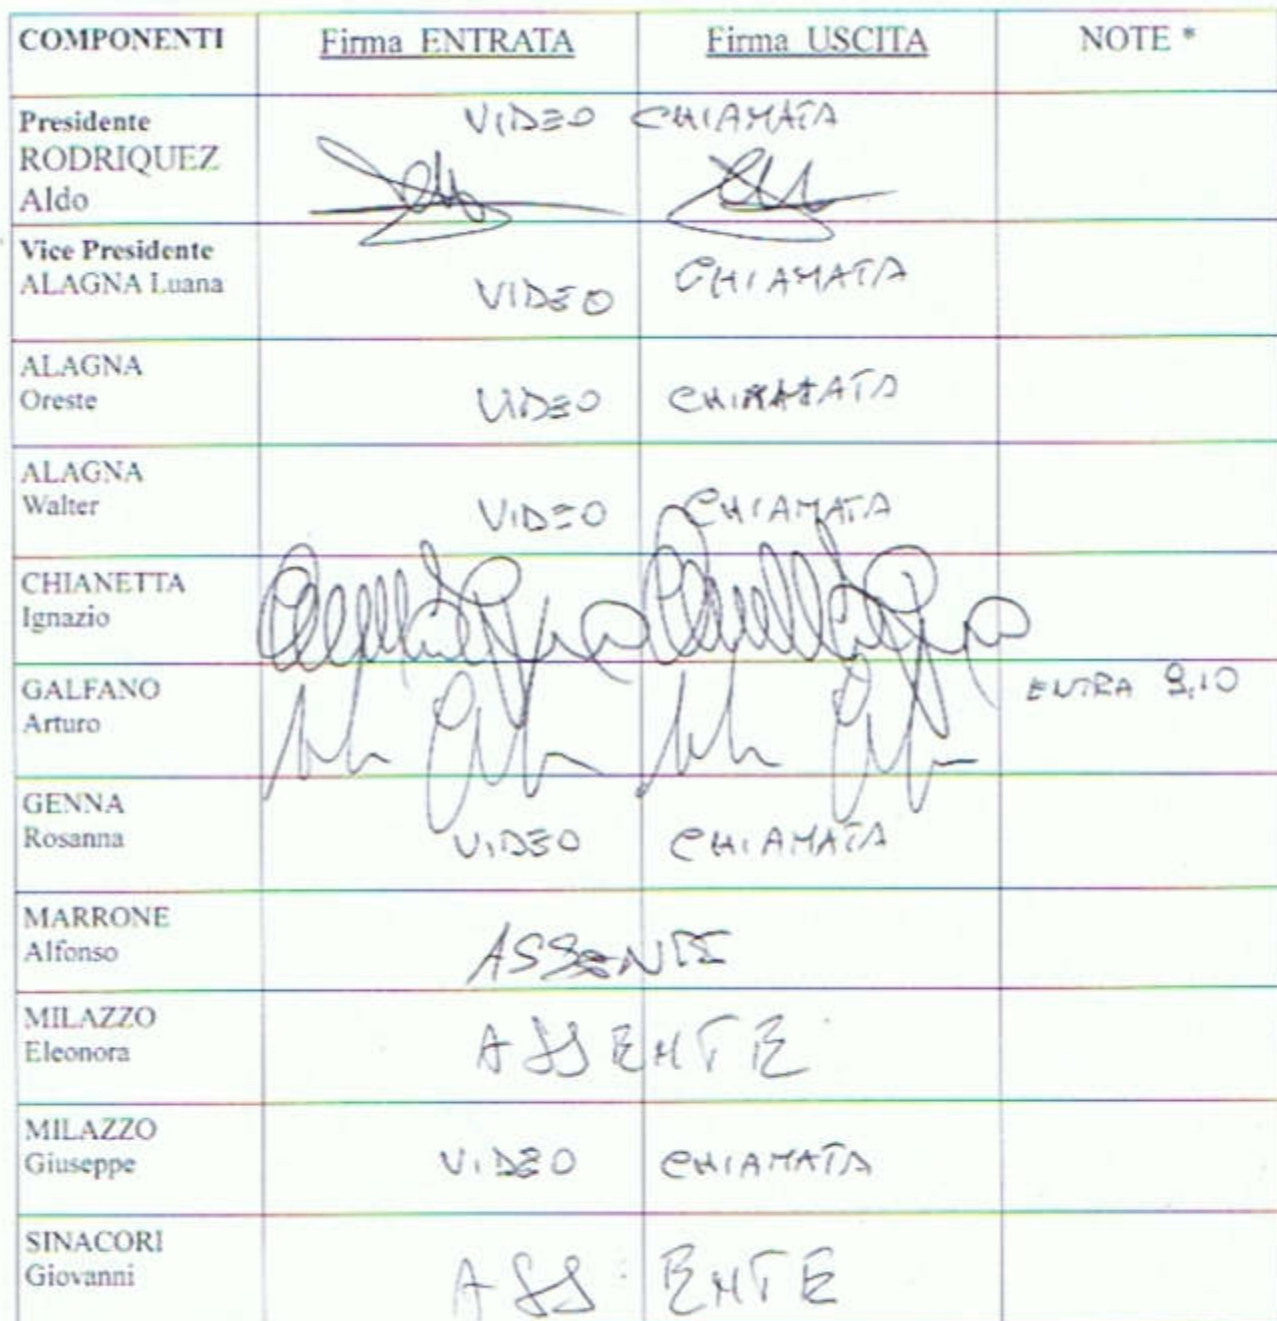 COMPONENTI Firma ENTRATA Firma USCITA NOTE *
Presidente
VIDEO CHIAMATA
RODRIQUEZ
Aldo
Vice Presidente
ALAGNA Luana
VIDEO CHIAMATA
ALAGNA
Oreste
VIDEO CHIAMATA
ALAGNA
Walter
VIDEO CHIAMATA
CHIANETTA
Ignazio
GALFANO
ENTRA 9,10
Arturo
GENNA
Rosanna
VIDEO CHIAMATA
MARRONE
Alfonso
ASSENTE
MILAZZO
Eleonora
ASSENTE
MILAZZO
Giuseppe
VIDEO CHIAMATA
SINACORI
Giovanni
ASSENTE